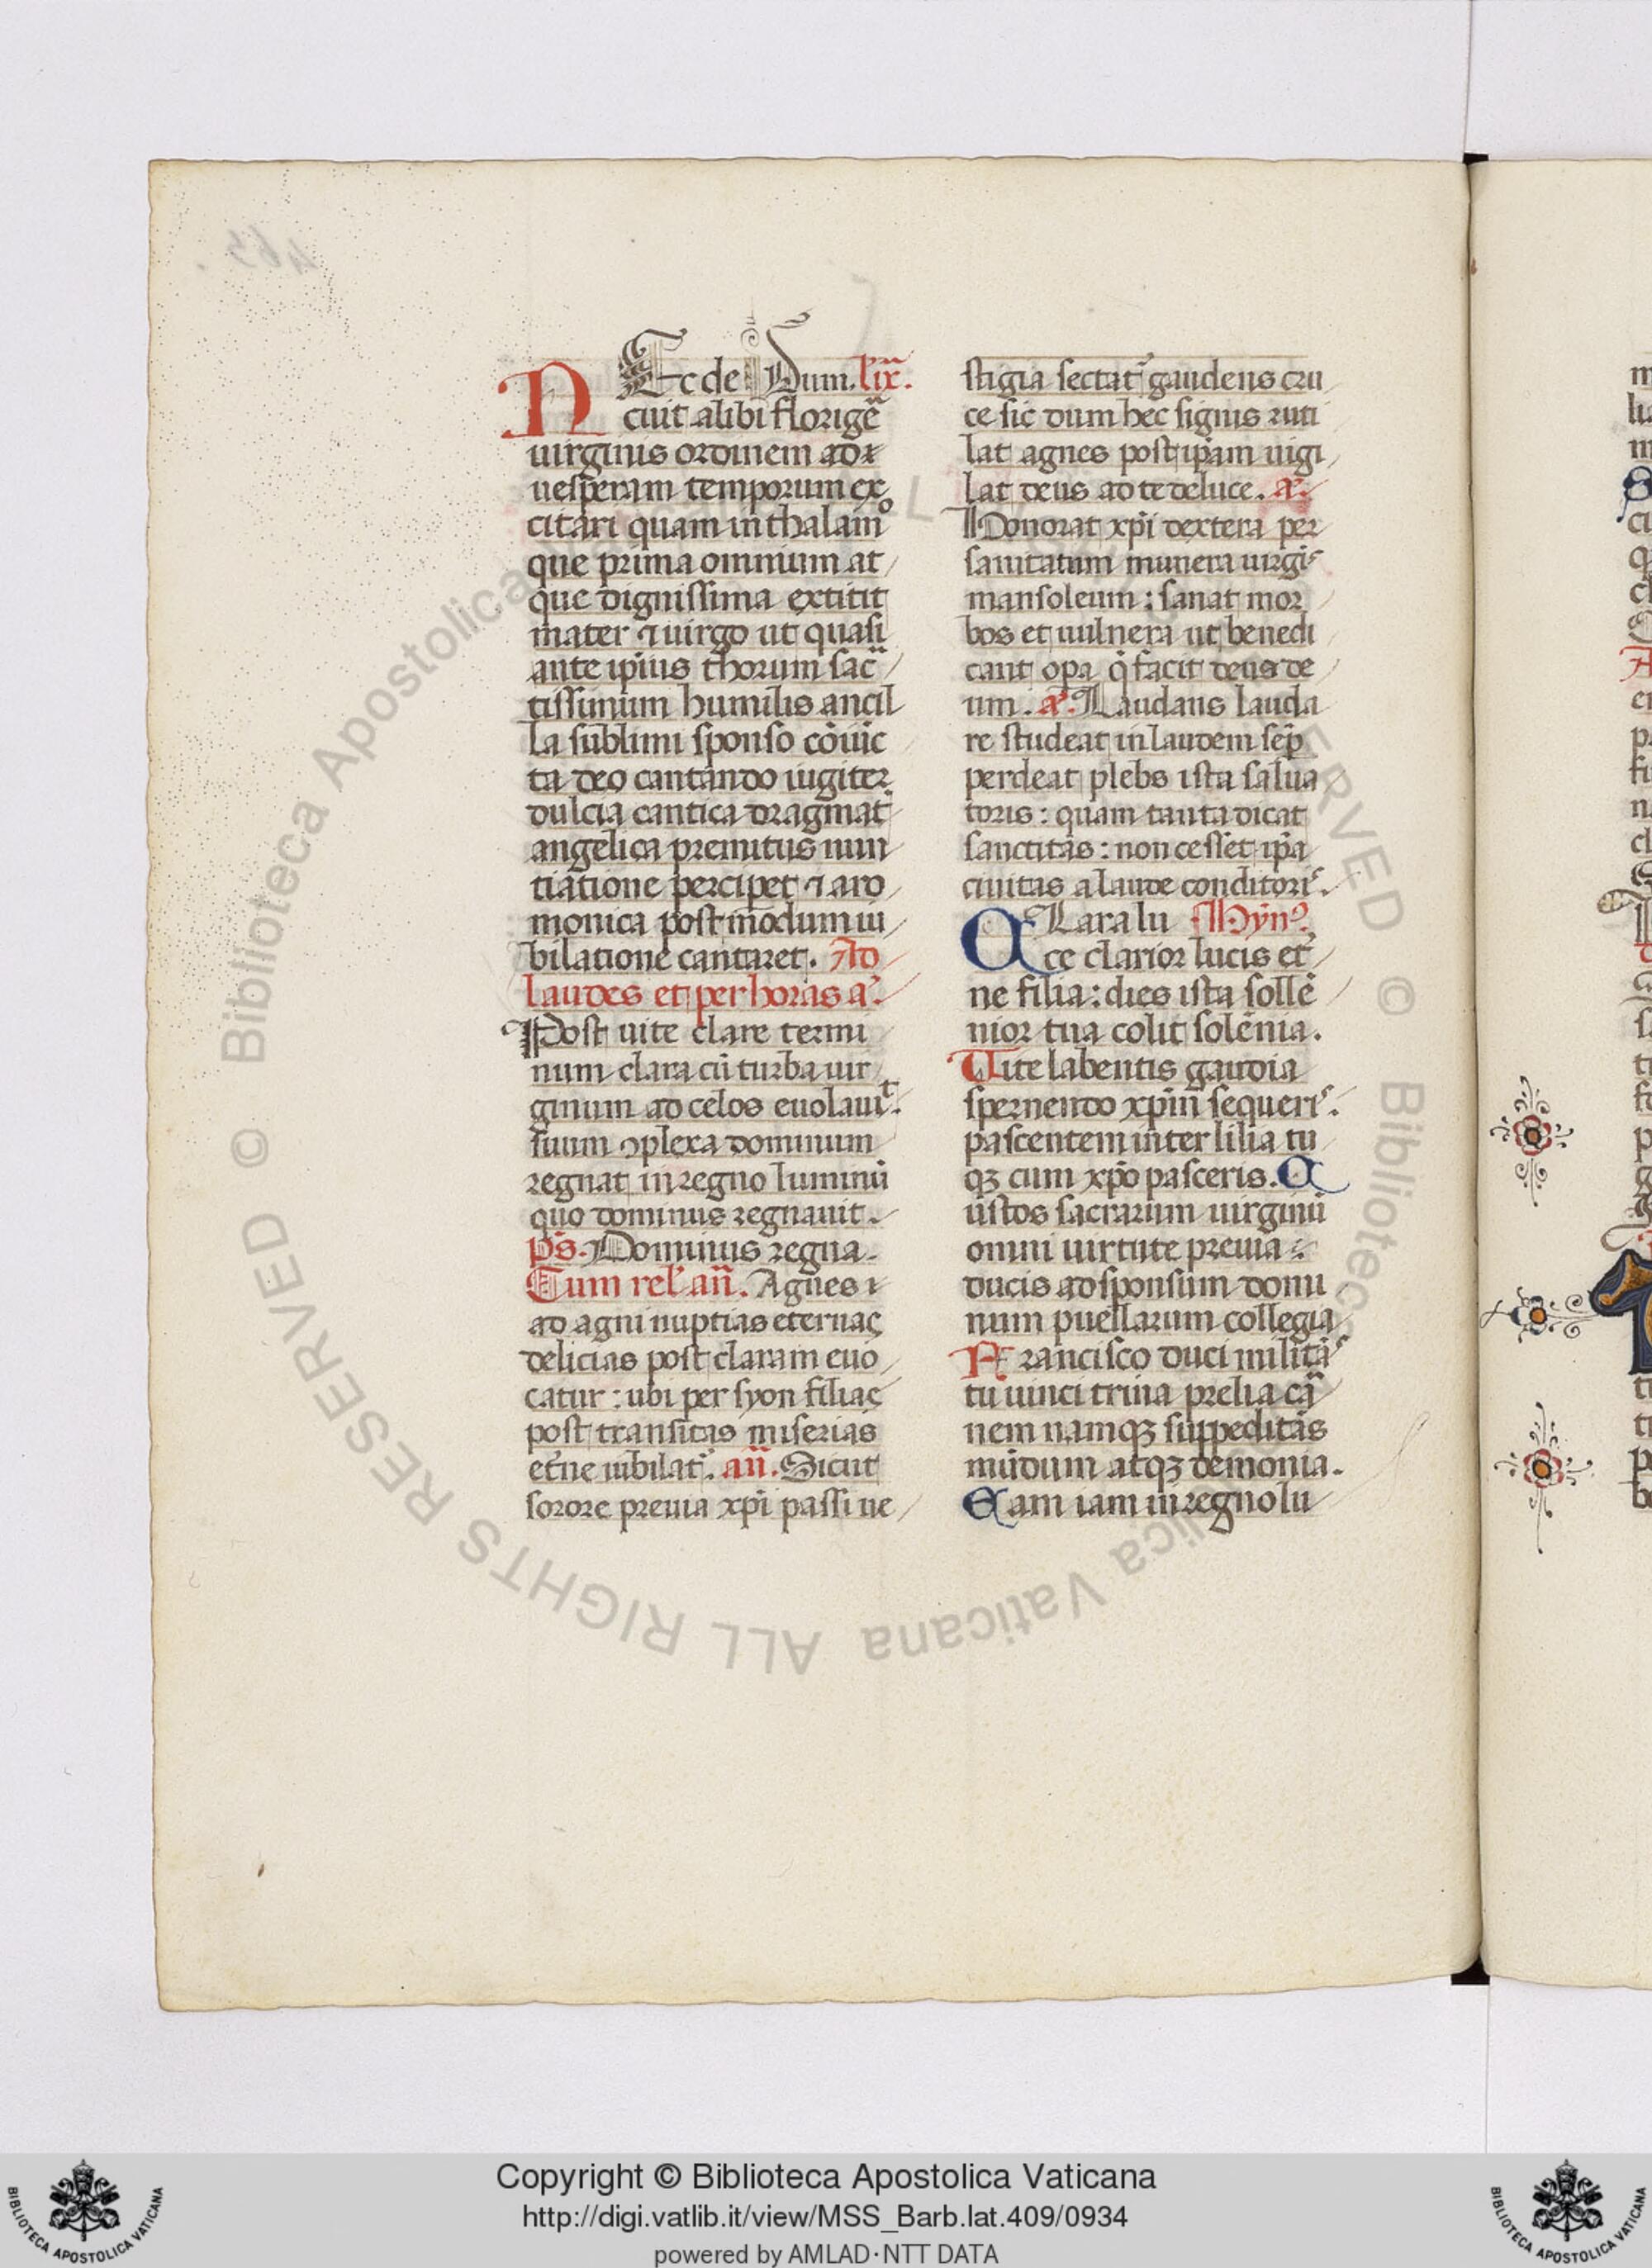 463.
NEc de Dum. lix̄.
cuit alibi florigē
uirginis ordinem ad
uesperam temporum ex
citari quam in thalamo
que prima omnium at
que dignissima extitit
mater ⁊ uirgo ut quasi
ante ip̄ius thorum sac̄
tissimum humilis ancil
la sublimi sponso cōuic
ta deo cantando iugiter
dulcia cantica dragmat̄
angelica premitus nun
tiatione perciper ⁊ aro
monica postmodum iu
bilatione cantaret. Ad
laudes et per horas a.
Post uite clare termi
num clara cū turba uir
ginum ad celos euolauit.
suum ꝯplexa dominum
regnat in regno luminū
quo dominus regnauit.
ps̄. Dominus regna.
Cum rel' an̄. Agnes
ad agni nuptias eternas
delicias post claram euo
catur: ubi per syon filias
post transitas miserias
et'ne iubilat'. an̄. Sicut
sorore preuia xp̄i passi ue
stigia sectat' gaudens cru
ce sic dum hec signis ruti
lat agnes post ip̄am uigi
lat deus ad te de luce. a'.
Honorat xp̄i dextera per
sanitatum munera uirgis
mausoleum: sanat mor
bos et uulnera ut benedi
cant op̄a q̄ facit deus de
um. a'. Laudans lauda
re studeat in laudem sēp
perdeat plebs ista salua
toris: quam tanta dicat
sanctitas: non cesset ip̄a
ciuitas a laude conditoris.
CLara lu Hyn9.
ce clarior lucis et'
ne filia: dies ista sollē
nior tua colit solēnia.
Uite labentis gaudia
spernendo xp̄m sequeris.
pascentem inter lilia tu
qꝫ cum xp̄o pasceris. C
ustos sacrarum uirginū
omni uirtute preuia:
ducis ad sponsum domi
num puellarum collegia
Francisco duci militās
tu uinci trina prelia car̄
nem namqꝫ suppeditās
mūdum atqꝫ demonia.
Eam iam in regno lu
Copyright © Biblioteca Apostolica Vaticana
http://digi.vatlib.it/view/MSS_Barb.lat.409/0934
powered by AMLAD·NTT DATA